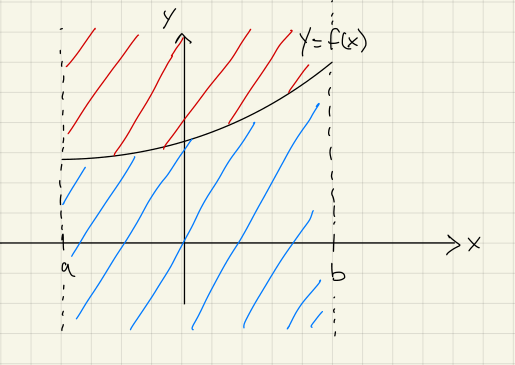 Y
Y=f(x)
X
a
b